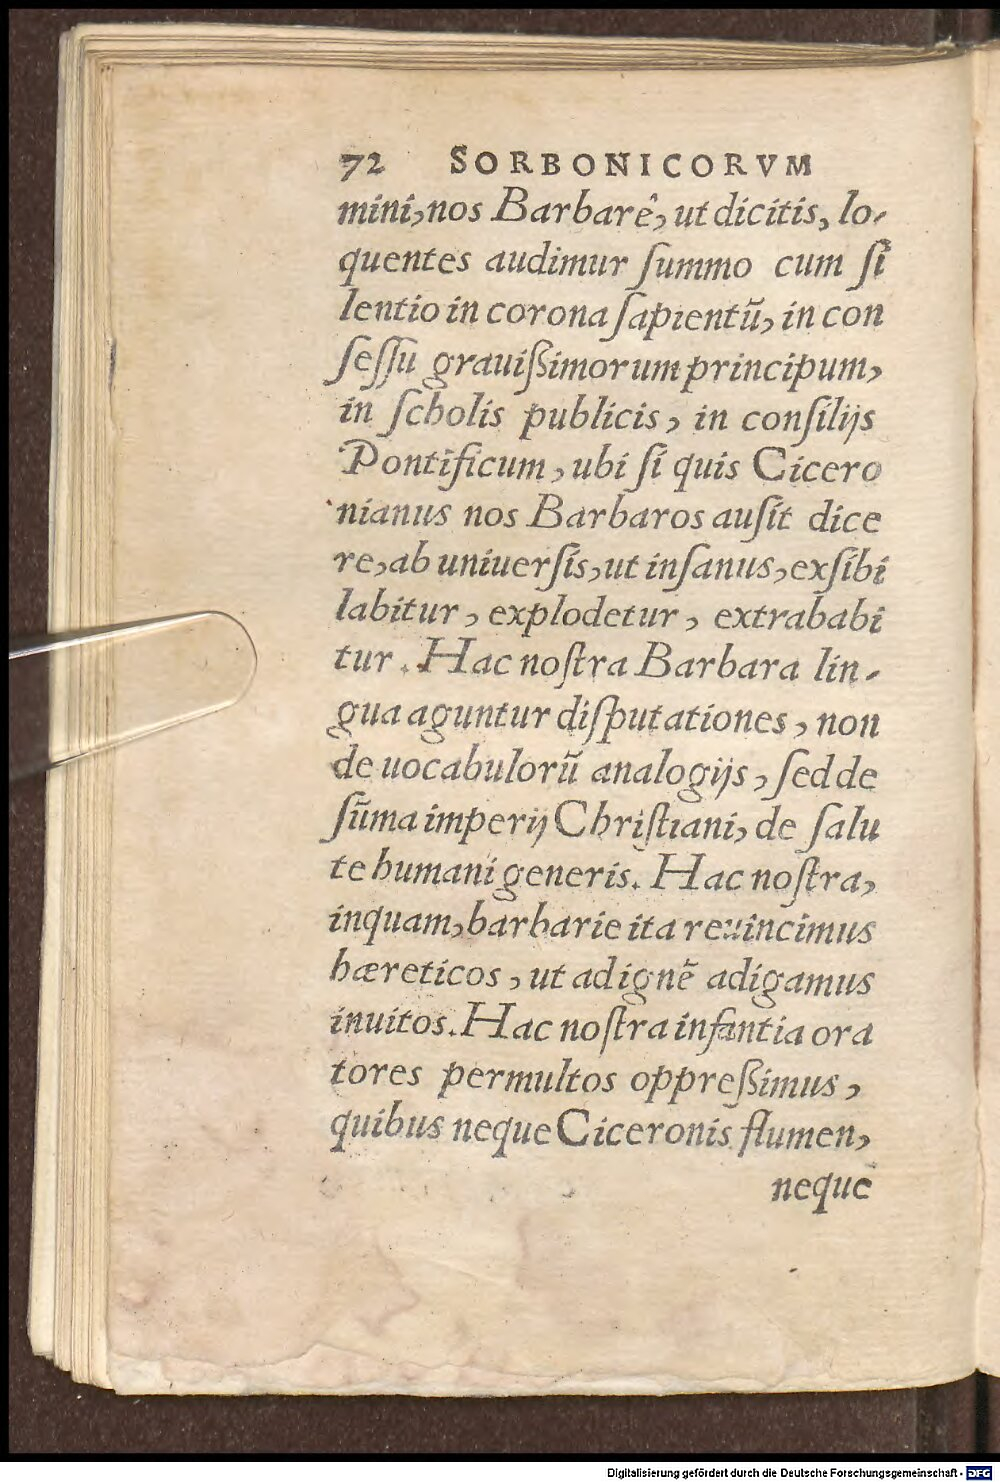 72 SORBONICORVM
mini, nos Barbarê, ut dicitis, lo-
quentes audimur ſummo cum ſi
lentio in corona ſapientũ, in con
ſeſſu grauiſsimorum principum,
in ſcholis publicis, in conſilijs
Pontificum, ubi ſi quis Cicero
nianus nos Barbaros auſit dice
re, ab uniuerſis, ut inſanus, exſibi
labitur, explodetur, extrahabi
tur. Hac noſtra Barbara lin-
gua aguntur diſputationes, non
de uocabulorũ analogijs, ſed de
ſũma imperij Chriſtiani, de ſalu
te humani generis. Hac noſtra,
inquam, barbarie ita reuincimus
hæreticos, ut ad ignẽ adigamus
inuitos. Hac noſtra infantia ora
tores permultos oppreſsimus,
quibus neque Ciceronis flumen,
neque
Digitalisierung gefördert durch die Deutsche Forschungsgemeinschaft - DFG